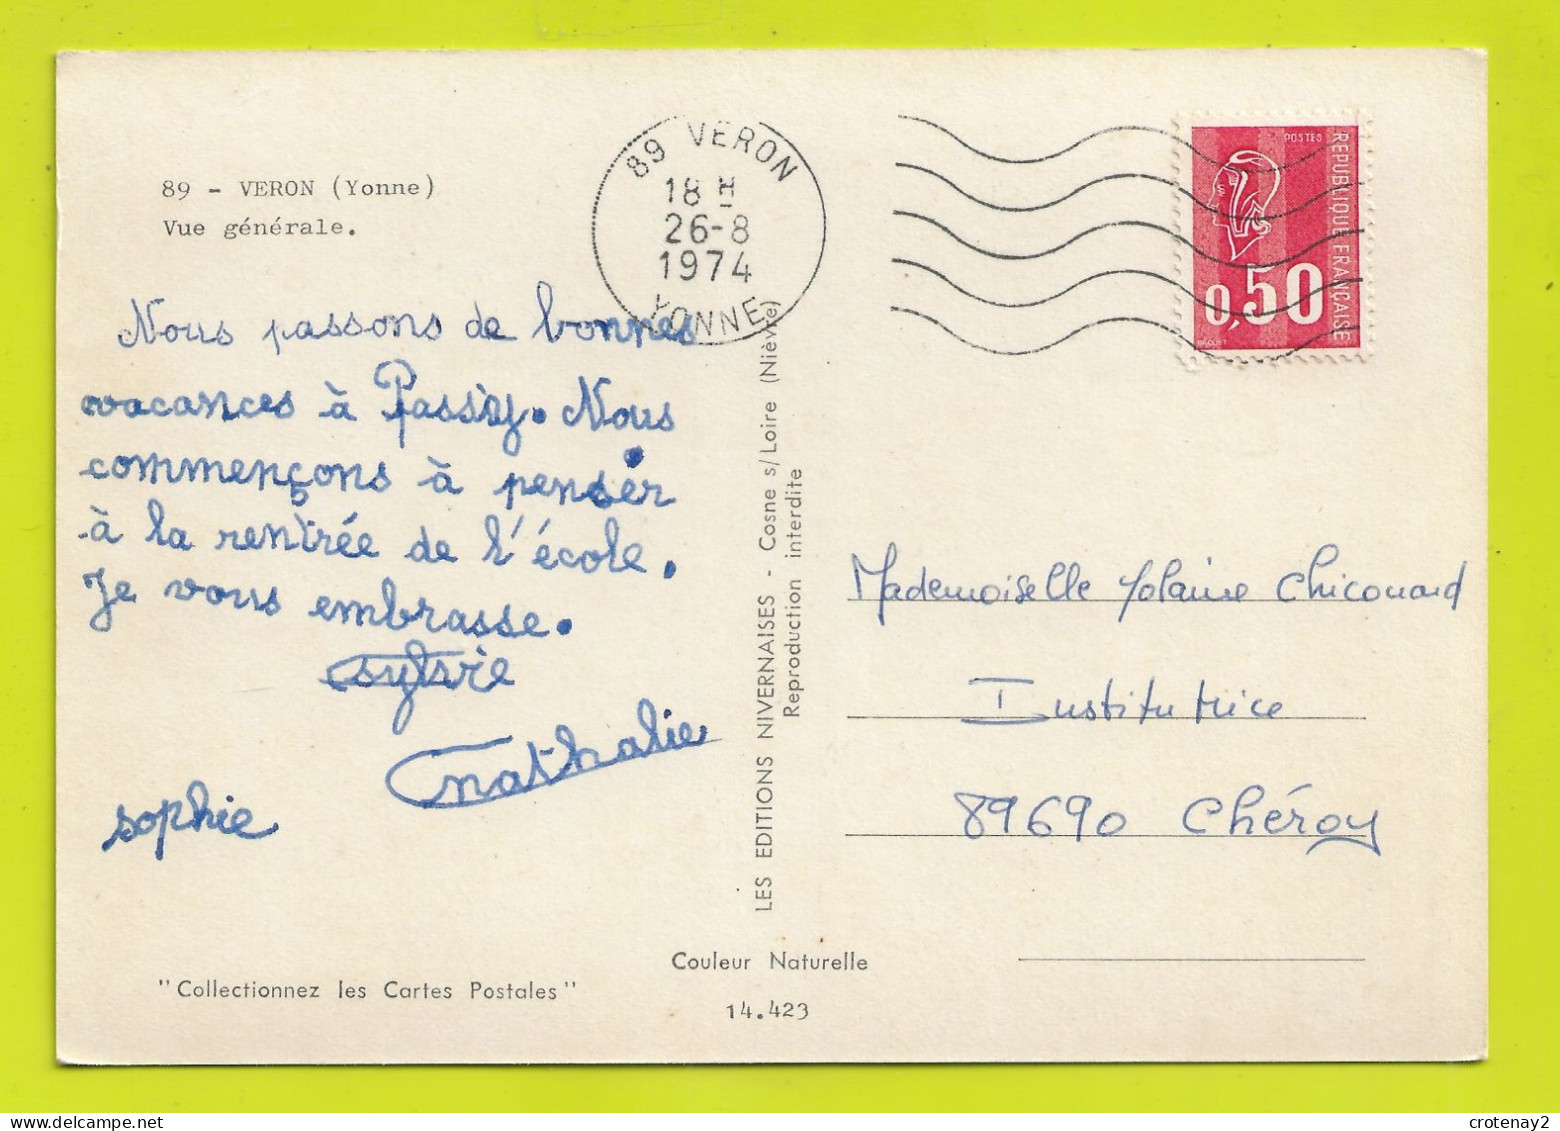 89 - VERON (Yonne)
Vue générale.
Nous passons de bonnes
vacances à Passy. Nous
commençons à penser
à la rentrée de l'école.
Je vous embrasse.
sylvie
nathalie
sophie
"Collectionnez les Cartes Postales"
89 VERON
18 H
26-8
1974
YONNE
LES EDITIONS NIVERNAISES - Cosne s/Loire (Nièvre)
Reproduction interdite
Couleur Naturelle
14.423
POSTES
REPUBLIQUE FRANÇAISE
0,50
BEQUET
Mademoiselle Yolaine Chicouard
Institutrice
89690 Chéroy
crotenay2